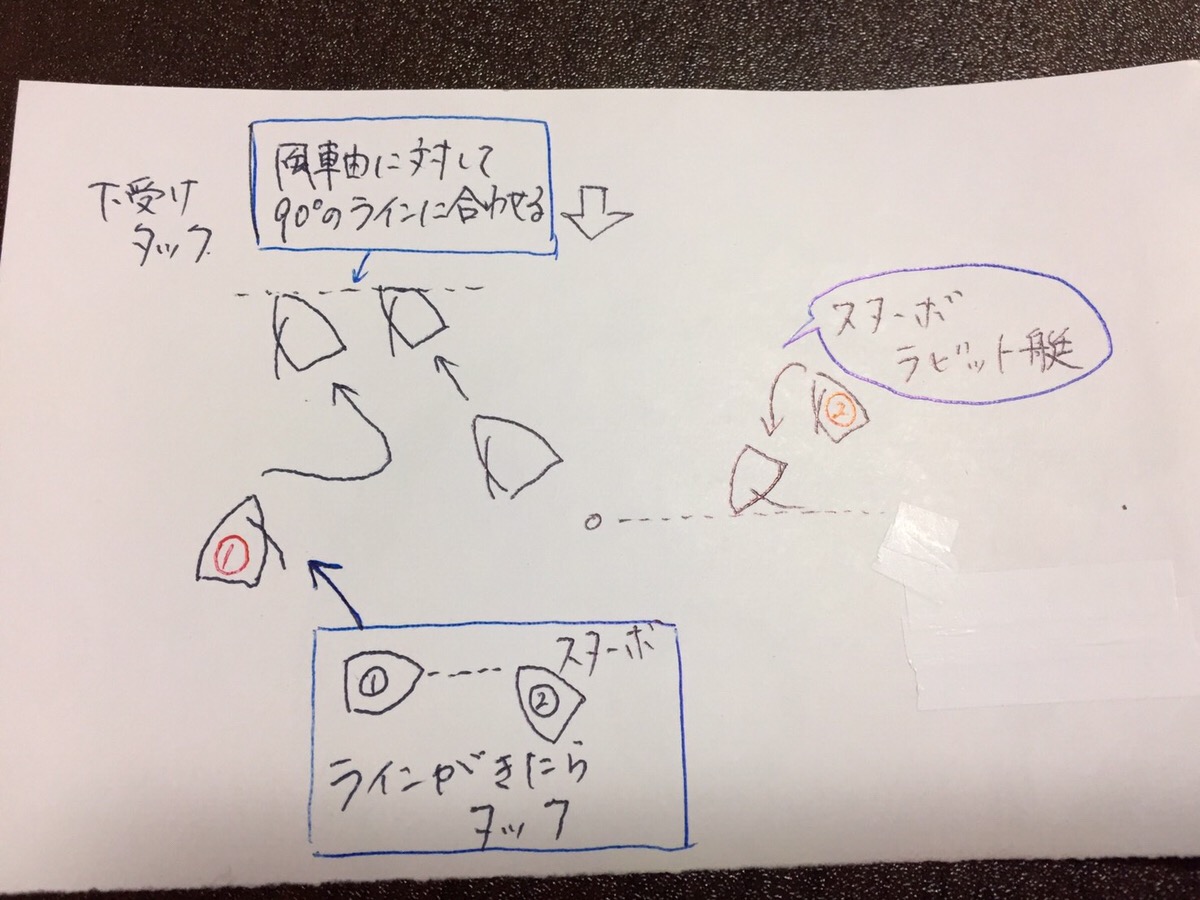 下受け
タック
風軸に対して
90°のラインに合わせる
スターボ
ラビット艇
②
①
スターボ
① ②
ラインがきたら
タック